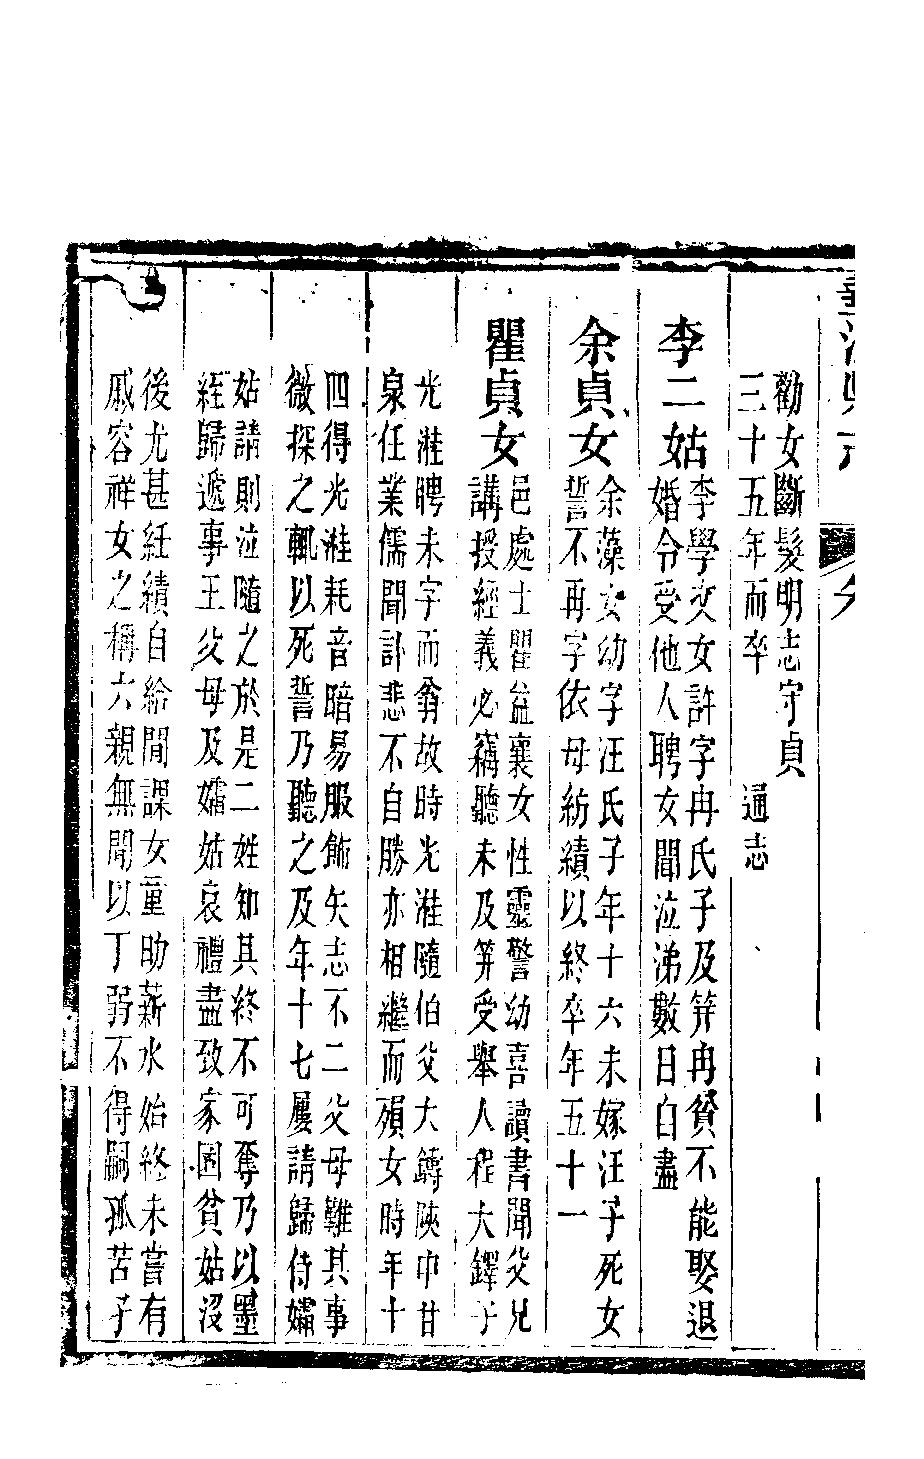 勸女斷髮明志守貞
三十五年而卒 通志
李二姑
李學文女許字冉氏子及笄冉貧不能娶退
婚令受他人聘女聞泣涕數日自盡
余貞女
余藻女幼字汪氏子年十六未嫁汪子死女
誓不再字依母紡績以終卒年五十一
瞿貞女
邑處士瞿益襄女性靈警幼喜讀書聞父兄
講授經義必竊聽未及笄受舉人程大鐸子
光漼聘未字而翁故時光漼隨伯父大鑄陝中甘
泉任業儒聞訃悲不自勝亦相繼而殞女時年十
四得光漼耗音暗易服飾矢志不二父母難其事
微探之輒以死誓乃聽之及年十七屢請歸侍孀
姑請則泣隨之於是二姓知其終不可奪乃以墨
絰歸遞事王父母及孀姑哀禮盡致家固貧姑沒
後尤甚紝績自給間課女童助薪水始終未嘗有
戚容祥女之稱六親無間以丁弱不得嗣孤苦子